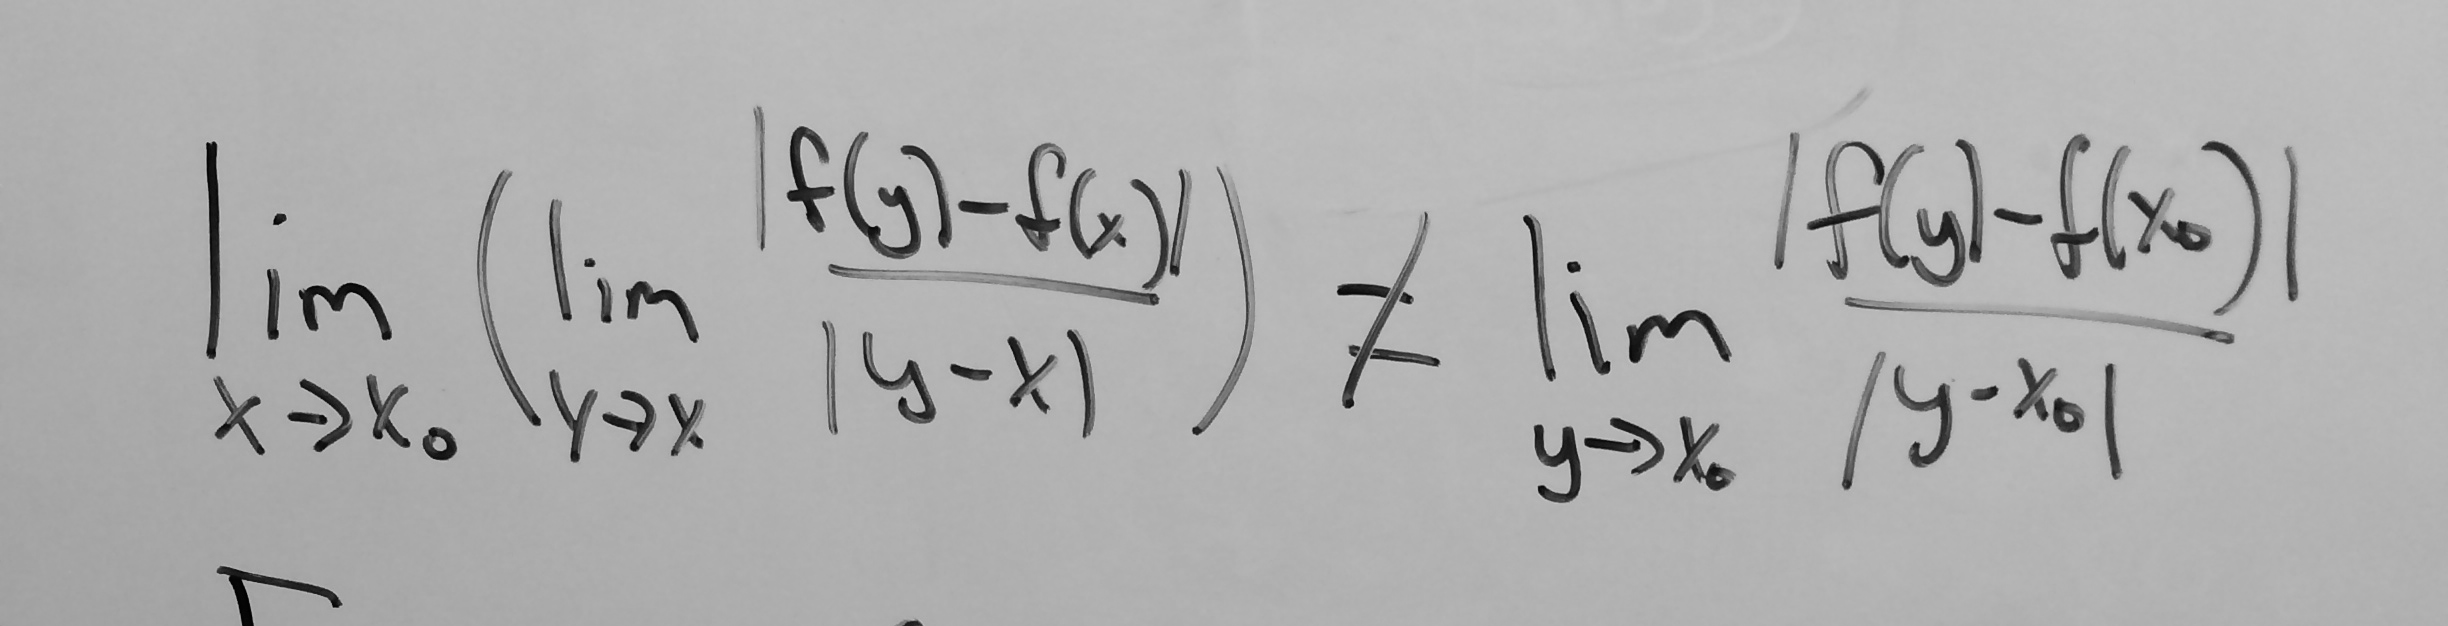 lim x→x₀ ( lim y→x |f(y)-f(x)| / |y-x| ) ≠ lim y→x₀ |f(y)-f(x₀)| / |y-x₀|